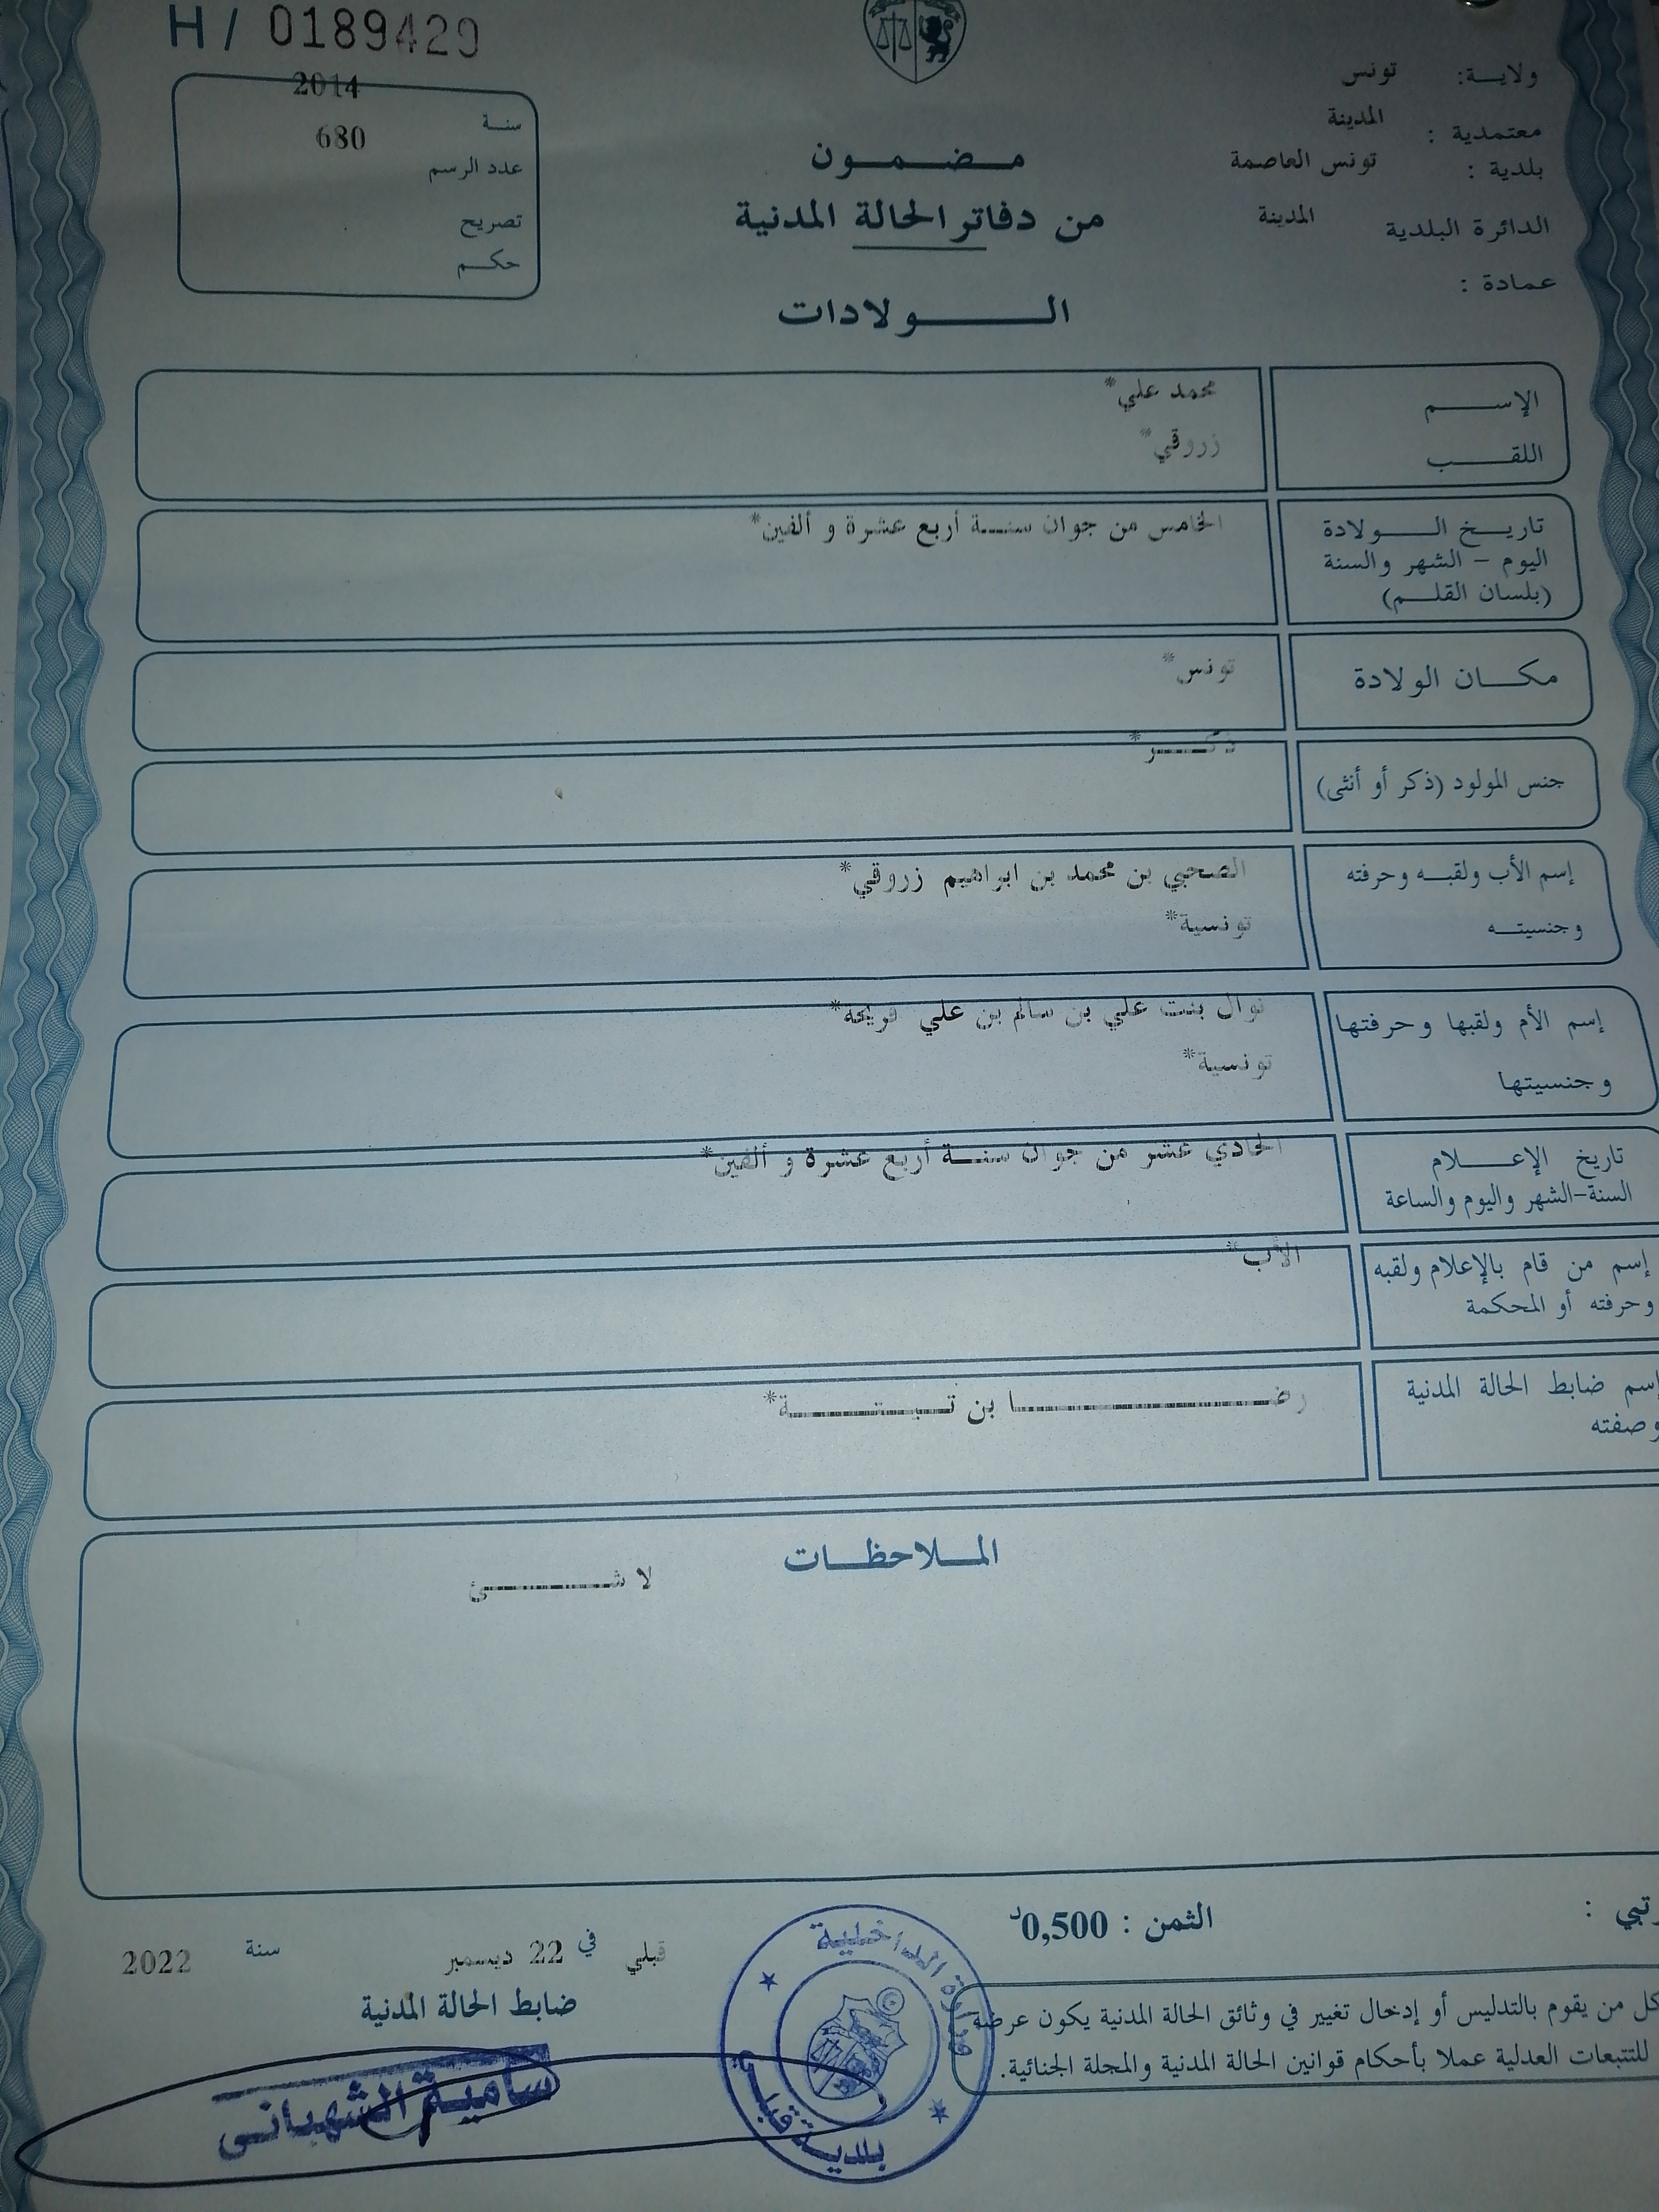 H / 0189420
ولايـــة: تونس
معتمدية : المدينة
بلدية : تونس العاصمة
الدائرة البلدية المدينة
عمادة :
2014
سنـة
680
عدد الرسم
تصريح
حكـم
مـضـمـون
من دفاتر الحالة المدنية
الـــولادات
الإســـم محمد علي*
اللقـــب زروقي*
تاريـخ الـــولادة الخامس من جوان سنـة أربع عشرة و ألفين*
اليوم - الشهر والسنة
(بلسان القلـم)
مكـــان الولادة تونس*
جنس المولود (ذكر أو أنثى) ذكــر*
إسم الأب ولقبـه وحرفته الصحبي بن محمد بن ابراهيم زروقي*
وجنسيتـه تونسية*
إسم الأم ولقبها وحرفتها نوال بنت علي بن سالم بن علي فريحة*
وجنسيتها تونسية*
تاريخ الإعـــلام الحادي عشر من جوان سنـة أربع عشرة و ألفين*
السنة-الشهر واليوم والساعة
إسم من قام بالإعلام ولقبه الأب*
وحرفته أو المحكمة
إسم ضابط الحالة المدنية رضـــا بن
وصفته
المـلاحظـات
لا شـــئ
الثمن : 0,500د
قبلي في 22 ديسمبر سنة 2022
ضابط الحالة المدنية
سامية الشهباني
وزارة الداخلية
بلدية قبلي
كل من يقوم بالتدليس أو إدخال تغيير في وثائق الحالة المدنية يكون عرضة
للتتبعات العدلية عملا بأحكام قوانين الحالة المدنية والمجلة الجنائية.